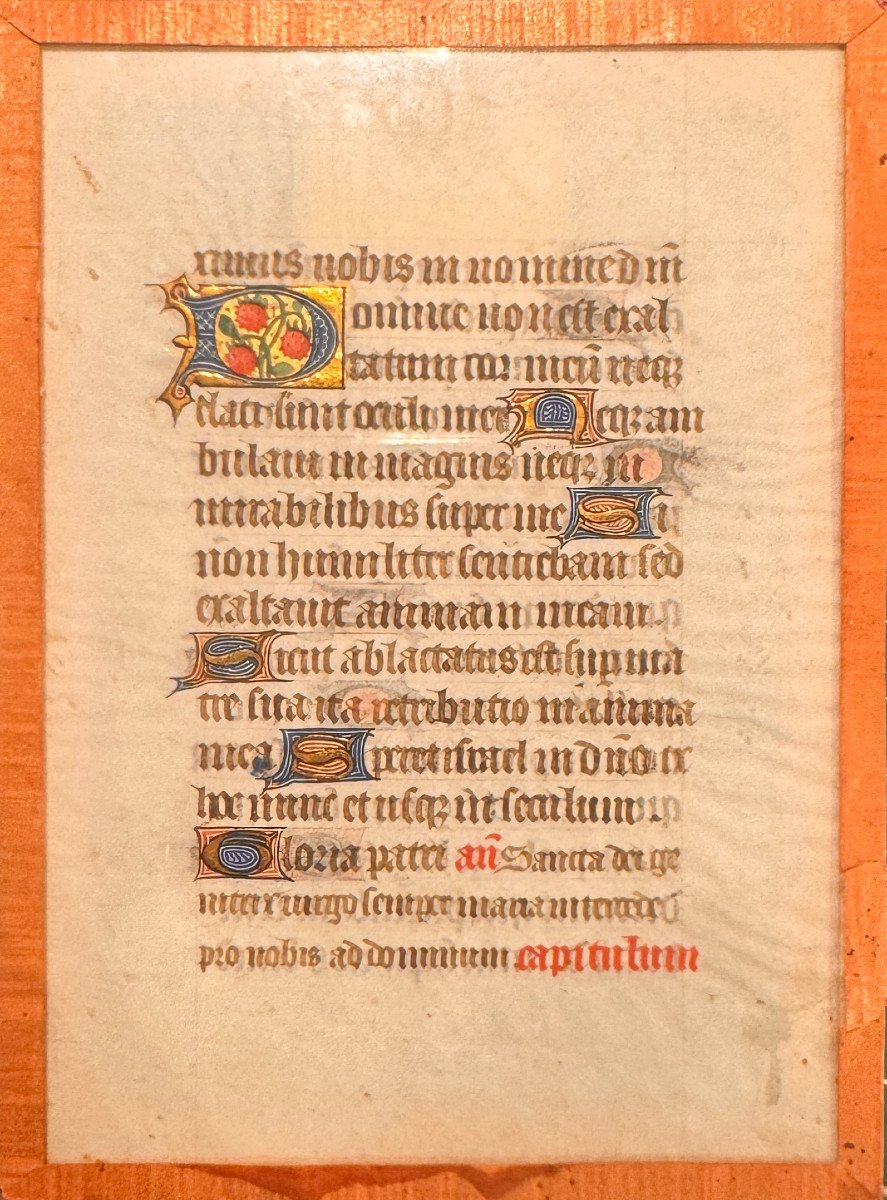 ximus nobis in nomine dñi
Domine non est exal
tatum cor meū neqz
elati sunt oculi mei Neqz am
bulaui in magnis neqz in
mirabilibus super me Si
non humiliter sentiebam sed
exaltaui animam meam.
Sicut ablactatus est sup ma
tre sua ita retributio in anima
mea Speret israel in dño ex
hoc nunc et usqz in seculum.
Gloria patri añ Sancta dei ge
nitrix uirgo semper maria intercede
pro nobis ad dominum capitulum